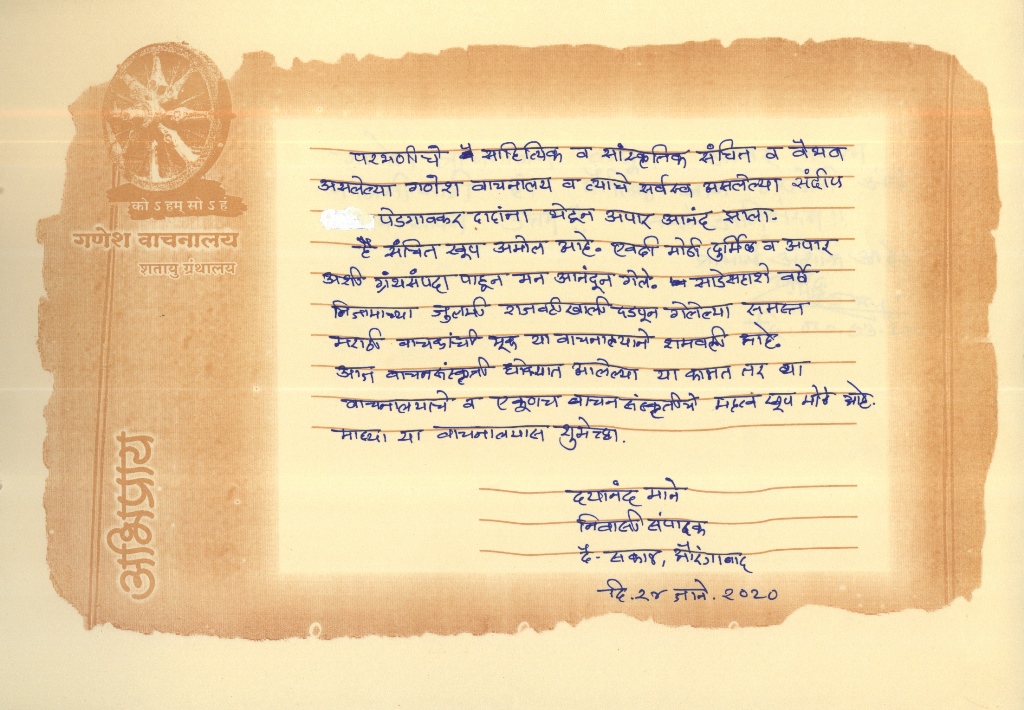 को ऽ हम् सो ऽ हं
गणेश वाचनालय
शतायु ग्रंथालय
अभिप्राय
परभणीचे साहित्यिक व सांस्कृतिक संचित व वैभव
असलेल्या गणेश वाचनालय व त्याचे सर्वस्व असलेल्या संदीप
पेडगावकर दादांना भेटून अपार आनंद झाला.
हे संचित खूप अमोल आहे. एवढी मोठी दुर्मिळ व अपार
अशी ग्रंथसंपदा पाहून मन आनंदून गेले. साडेसहाशे वर्षे
निजामाच्या जुलमी राजवटीखाली दडपून गेलेल्या समस्त
मराठी वाचकांची भूक या वाचनालयाने शमवली आहे.
आज वाचनसंस्कृती धोक्यात आलेल्या या काळात तर या
वाचनालयाचे व एकूणच वाचन संस्कृतीचे महत्त्व खूप मोठे आहे.
माझ्या या वाचनालयास शुभेच्छा.
दयानंद माने
निवासी संपादक
दै. सकाळ, औरंगाबाद
दि. २४ जाने. २०२०